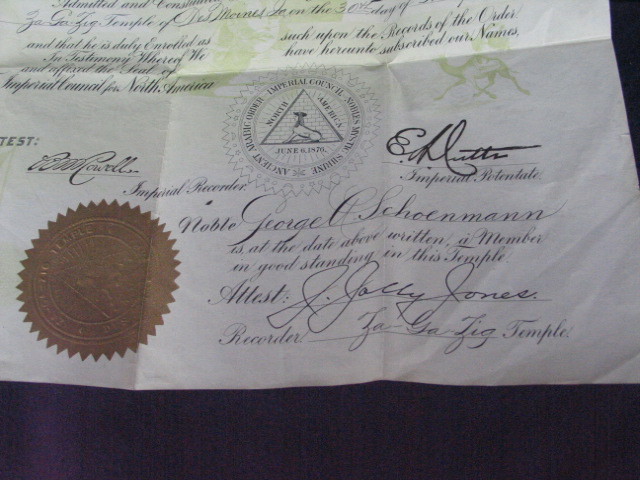 Admitted and
Za-Ga-Zig Temple of Des Moines Ia on the 30th day of
and that he is duly Enrolled as
such upon the Records of the Order.
In Testimony Whereof We
have hereunto subscribed our Names,
and affixed the Seal of
Imperial Council for North America
IMPERIAL COUNCIL NOBLES MYSTIC SHRINE ANCIENT ARABIC ORDER
NORTH AMERICA
JUNE 6, 1876.
TTEST:
Imperial Recorder.
Imperial Potentate.
Noble George A Schoenmann
is, at the date above written, a Member
in good standing in this Temple.
Attest: J. Jolly Jones.
Recorder Za-Ga-Zig Temple.